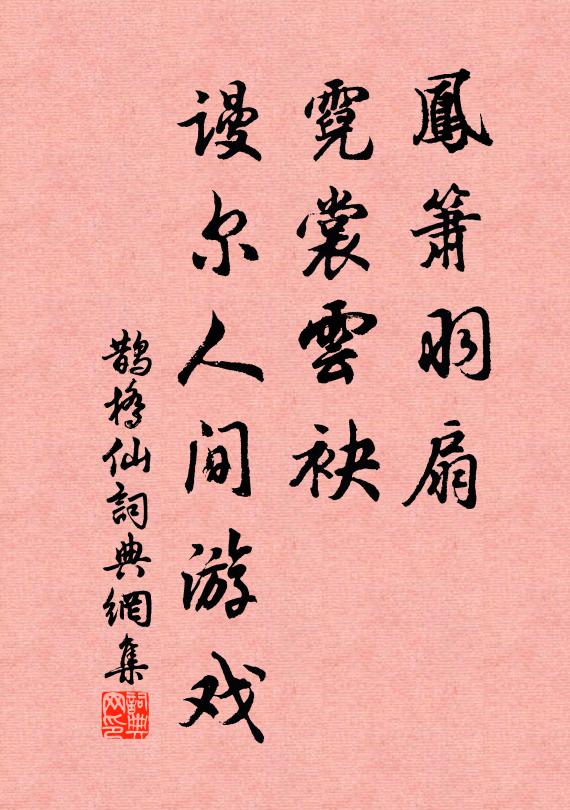 鳳簫羽扇
霓裳雲袂
谩尔人间游戏
鵲橋仙詞典網集
詞典网印